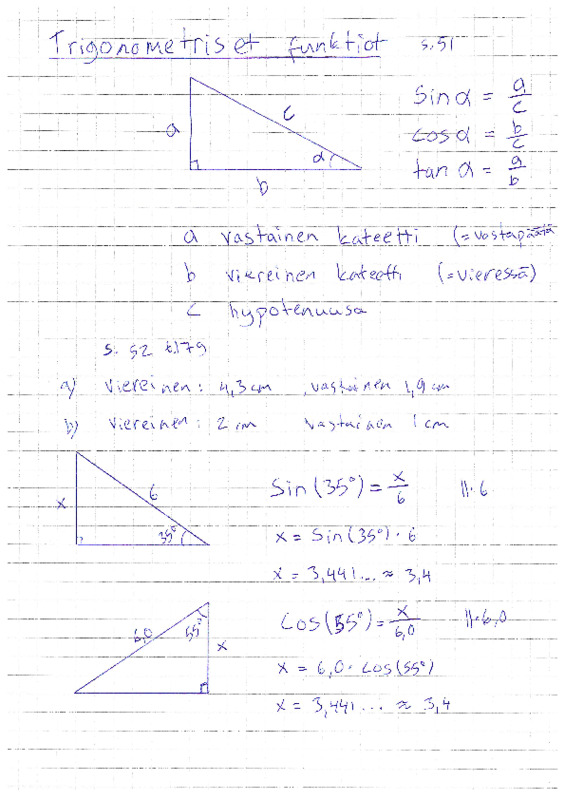 Trigonometriset funktiot s.51
a c α b
sin α = a/c
cos α = b/c
tan α = a/b
a vastainen kateetti (=vastapäätä
b viereinen kateetti (=vieressä)
c hypotenuusa
s. 52 t.179
a) Viereinen: 4,3 cm , vastainen 1,9 cm
b) Viereinen: 2 cm vastainen 1 cm
x 6 35°
Sin(35°) = x/6 ||·6
x = Sin(35°)·6
x = 3,441... ≈ 3,4
6,0 55° x
Cos(55°) = x/6,0 ||·6,0
x = 6,0 · cos(55°)
x = 3,441... ≈ 3,4